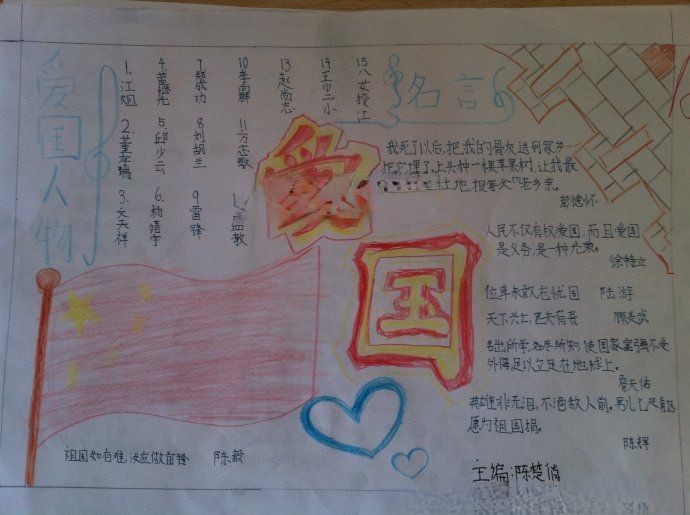 爱国人物
1.江姐
2.董存瑞
3.文天祥
4.黄继光
5.邱少云
6.杨靖宇
7.郑成功
8.刘胡兰
9.雷锋
10.李向群
11.方志敏
13.赵尚志
14.王二小
15八女投江
名言
我死了以后,把我的骨灰送到家乡…
把它埋了,上头种一棵苹果树,让我最
土地,报答父老乡亲。
彭德怀
爱
国
人民不仅有权爱国,而且爱国
是义务,是一种光荣。
徐特立
位卑未敢忘忧国 陆游
天下兴亡,匹夫有责 顾炎武
各出所学,各尽所知,使国家富强不受
外侮,足以立足在地球上。
詹天佑
英雄非无泪,不洒敌人前。男儿七尺躯
愿为祖国捐。
陈辉
祖国如有难,汝应做前锋 陈毅
主编:陈楚俏